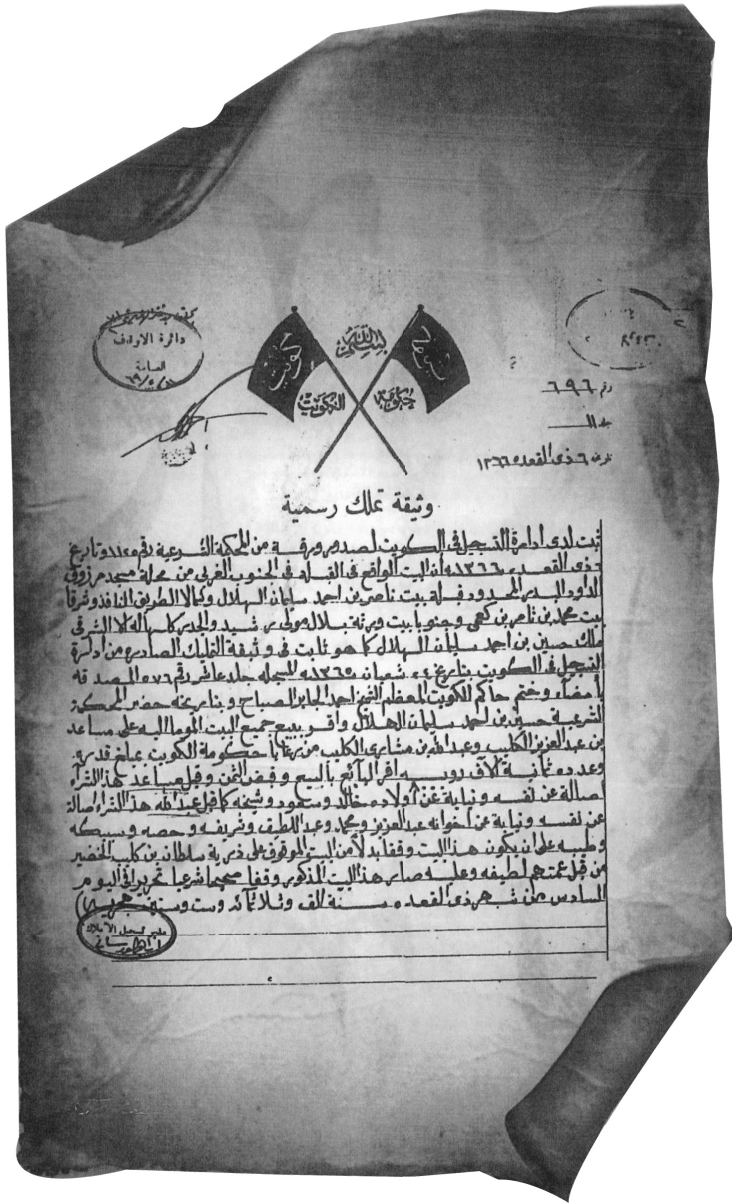 دائرة الاوقاف
العامة
بسم الله
كويت
كويت
حكومة
الكويت
رقم ٦٩٦
جلد الـ
تاريخ ٦ ذى القعده ١٣٦٦
وثيقة تملك رسمية
ثبت لدى ادارة التسجيل في الكويت لصدور ورقة من المحكمة الشرعية رقم ١١٢٥ وتاريخ
٦ ذى القعده ١٣٦٦ﻫ أن البيت الواقع في القبلة في الجنوب الغربي من محلة مسجد مرزوق
الداود البدر المحدود قبلة بيت ناصر بن احمد سليمان الهلال وشمالا الطريق النافذ وشرقا
بيت محمد بن ناصر بن وجنوبا بيت ورثة بلال مولى بن شيد والجدر كاملها له الا الشرقي
ملك حسين بن احمد سليمان الهلال كما هو ثابت في وثيقة التمليك الصادره من ادارة
التسجيل في الكويت بتاريخ ٢٤ شعبان ١٣٦٥ﻫ المسجله جلد عاشر رقم ٥٧٦ المصدقه
بأمضاء وختم حاكم الكويت المعظم الشيخ احمد الجابر الصباح وبتاريخه حضر المحكمة
الشرعية حسين بن احمد سليمان الهلال واقر ببيع جميع البيت الموما اليه على مساعد
بن عبد العزيز الكليب وعبد الله بن مشاري الكليب من رعايا حكومة الكويت بمبلغ قدره
وعدده ثمانية آلاف روبيه اقر البائع بالبيع وقبض الثمن وقبل مساعد هذا الشراء
اصالة عن نفسه ونيابة عن أولاده خالد وسعود وشيخه كما قبل عبد الله هذا الشراء اصالة
عن نفسه ونيابة عن اخوانه عبد العزيز ومحمد وعبد اللطيف وشريفه وحصه وسبيكه
وطيبه على ان يكون هذا البيت وقفا بدلا من البيت الموقوف على ذرية سلطان بن كليب الخضير
من قبل عمتهم لطيفه وعليه صار هذا البيت المذكور وقفا صحيحا شرعيا تحريرا في اليوم
السادس من شهر ذى القعده سنة الف وثلاثمائه وست وستين هجريه
مدير تسجيل الأملاك